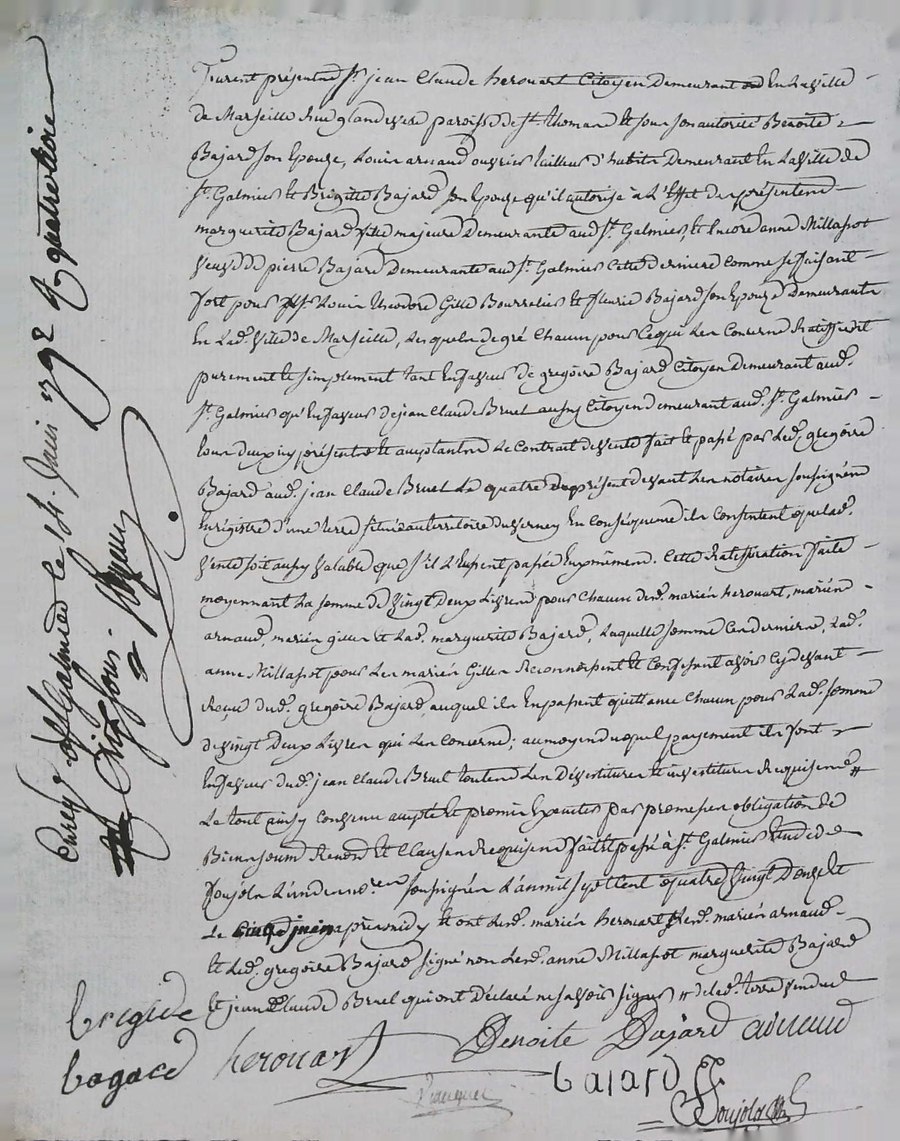 Furent présents Sr. jean Claude herouart Citoyen Demeurant En La ville
de Marseille Rue glandeves paroisse de St. thomas Et sous son autorité Benoite
Bajard son Epouze, Louis arnaud ouvrier tailleur d'habits Demeurant En La ville de
St. Galmier Et Brigitte Bajard son Epouze qu'il autorise à L'Effet des présentes
marguerite Bajard fille majeure Demeurante aud. St. Galmier, Et Encore anne Millasot
veuve de pierre Bajard Demeurante aud. St. Galmier Cette derniere comme se faisant
fort pour Sr. Louis theodore Gille Bourrelier Et fleurie Bajard son Epouze Demeurants
En Lad. ville de Marseille, Lesquels de gré Chacun pour Ce qui Les Concerne Ratiffient
purement Et simplement tant En faveur de gregoire Bajard Citoyen Demeurant aud.
St. Galmier qu'En faveur de jean Claude Bruel aussy Citoyen demeurant aud. St. Galmier
tous deux icy présents Et acceptants Le Contrait de vente fait Et passé par Led. gregoire
Bajard aud. jean Claude Bruel Le quatre du présent devant Les notaires soussignés
Enregistré d'une terre située au territoire du verney En Conséquence ils Consentent que Lad.
vente soit aussy valable que s'il L'Eussent passée Euxmêmes. Cette Ratiffication faite
moyennant La somme de vingt Deux Livres pour Chacun des. mariés herouart, mariés
arnaud, mariés gilles Et Lad. marguerite Bajard, Laquelle somme Ces derniers, Lad.
anne Millasot pour Les mariés Gilles Reconnoissent Et Confessent avoir Cy devant
Reçu dud. gregoire Bajard, auquel ils En passent quittance Chacun pour Lad. somme
de vingt Deux Livres qui Les Concerne; au moyen duquel payement ils font
En faveur dud. jean Claude Bruel toutes Les Dévestitures Et investitures Requises #
Le tout ainsy Convenu accepté Et promis Executer par promesses obligation de
Biens soumis Renon. Et Clauses Requises fait Et passé à St. Galmier Etude de
Poujols L'un des no.res soussignés L'an mil sept Cent quatre vingt Douze Et
Le Cinq juin après midy Et ont Lesd. mariés herouart Lesd. mariés arnaud
Et Led. gregoire Bajard signé non Lesd. anne Millasot marguerite Bajard
Et jean Claude Bruel qui ont Déclaré ne savoir signer # de lad. terre vendue
brigide
bagard
herouart
Benoite Bajard arnaud
bajard
Poujols
Enreg. à St. Galmier le 14. Juin 1792